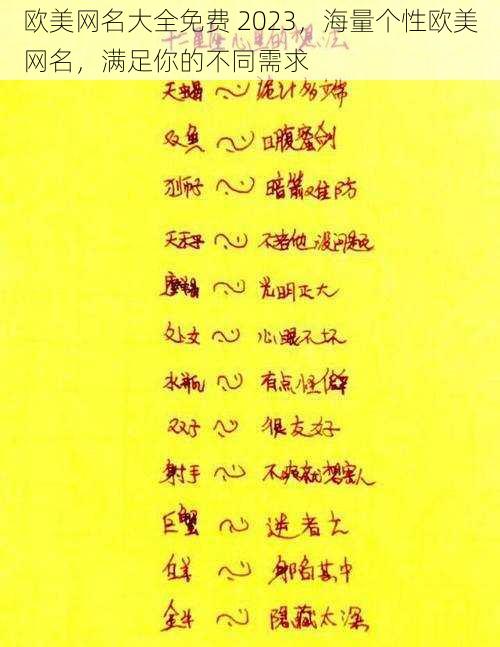 欧美网名大全免费 2023，海量个性欧美
网名，满足你的不同需求
十二星座心里的想法
天蝎～诡计多端
双鱼～口腹蜜剑
狮子～暗箭难防
天秤～不惹他没问题
摩羯～光明正大
处女～心眼不坏
水瓶～有点怪僻
双子～很友好
射手～不爽就想害人
巨蟹～逆者亡
白羊～身陷其中
金牛～隐藏太深